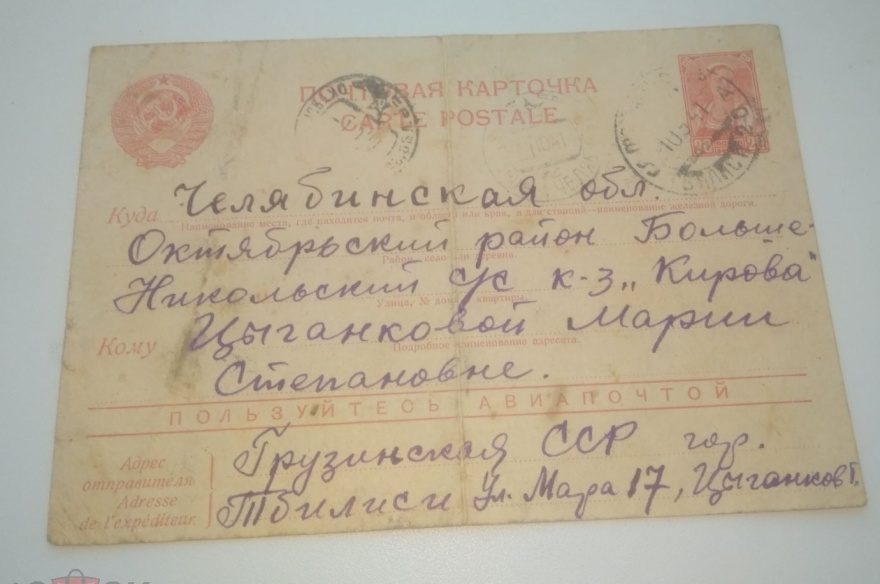 ПОЧТОВАЯ КАРТОЧКА
CARTE POSTALE
Челябинская обл.
Куда
Наименование места, где находится почта, и области или края, а для станций—наименование железной дороги.
Октябрьский район Больше-
Район, село или деревня.
Никольский с/с к-з „Кирова"
Улица, № дома и квартиры.
Кому Цыганковой Марии
Подробное наименование адресата.
Степановне.
ПОЛЬЗУЙТЕСЬ АВИАПОЧТОЙ
Адрес отправителя
Adresse de l'expéditeur
Грузинская ССР гор.
Тбилиси ул. Мара 17, Цыганков Г.